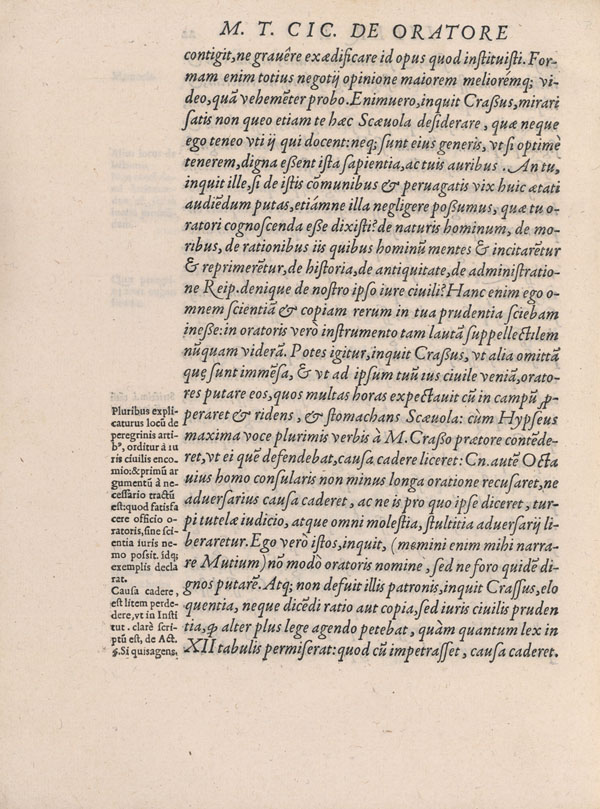 M. T. CIC. DE ORATORE
contigit, ne grauêre exædificare id opus quod instituisti. For-
mam enim totius negotij opinione maiorem meliorémq; vi-
deo, quã vehemẽter probo. Enimuero, inquit Craßus, mirari
satis non queo etiam te hæc Scæuola desiderare, quæ neque
ego teneo vti ij qui docent: neq; sunt eius generis, vt si optimè
tenerem, digna eßent ista sapientia, ac tuis auribus. An tu,
inquit ille, si de istis cõmunibus & peruagatis vix huic ætati
audiẽdum putas, etiámne illa negligere poßumus, quæ tu o-
ratori cognoscenda eße dixisti? de naturis hominum, de mo-
ribus, de rationibus iis quibus hominũ mentes & incitarẽtur
& reprimerẽtur, de historia, de antiquitate, de administratio-
ne Reip. denique de nostro ipso iure ciuili? Hanc enim ego o-
mnem scientiã & copiam rerum in tua prudentia sciebam
ineße: in oratoris verò instrumento tam lautã suppellectilem
nũquam viderã. Potes igitur, inquit Craßus, vt alia omittã
quę sunt immẽsa, & vt ad ipsum tuũ ius ciuile veniã, orato-
res putare eos, quos multas horas expectauit cũ in campũ ꝓ-
peraret & ridens, & stomachans Scæuola: cùm Hypseus
maxima voce plurimis verbis à M. Craßo prætore contẽde-
ret, vt ei quẽ defendebat, causa cadere liceret: Cn. autẽ Octa
uius homo consularis non minus longa oratione recusaret, ne
aduersarius causa caderet, ac ne is pro quo ipse diceret, tur-
pi tutelæ iudicio, atque omni molestia, stultitia aduersarij li-
beraretur. Ego verò istos, inquit, (memini enim mihi narra-
re Mutium) nõ modò oratoris nomine, sed ne foro quidẽ di-
gnos putarẽ. Atq; non defuit illis patronis, inquit Crassus, elo
quentia, neque dicẽdi ratio aut copia, sed iuris ciuilis pruden
tia, ꝙ alter plus lege agendo petebat, quàm quantum lex in
XII tabulis permiserat: quod cũ impetrasset, causa caderet.
Pluribus expli-
caturus locũ de
peregrinis arti-
bꝰ, orditur à iu
ris ciuilis enco-
mio: & primũ ar
gumentũ à ne-
cessario tractũ
est: quod satisfa
cere officio o-
ratoris, sine sci-
entia iuris ne-
mo possit. idq;
exemplis decla
rat.
Causa cadere,
est litem perde-
dere, vt in Insti
tut. clarè scri-
ptũ est, de Act.
§. Si quis agens,